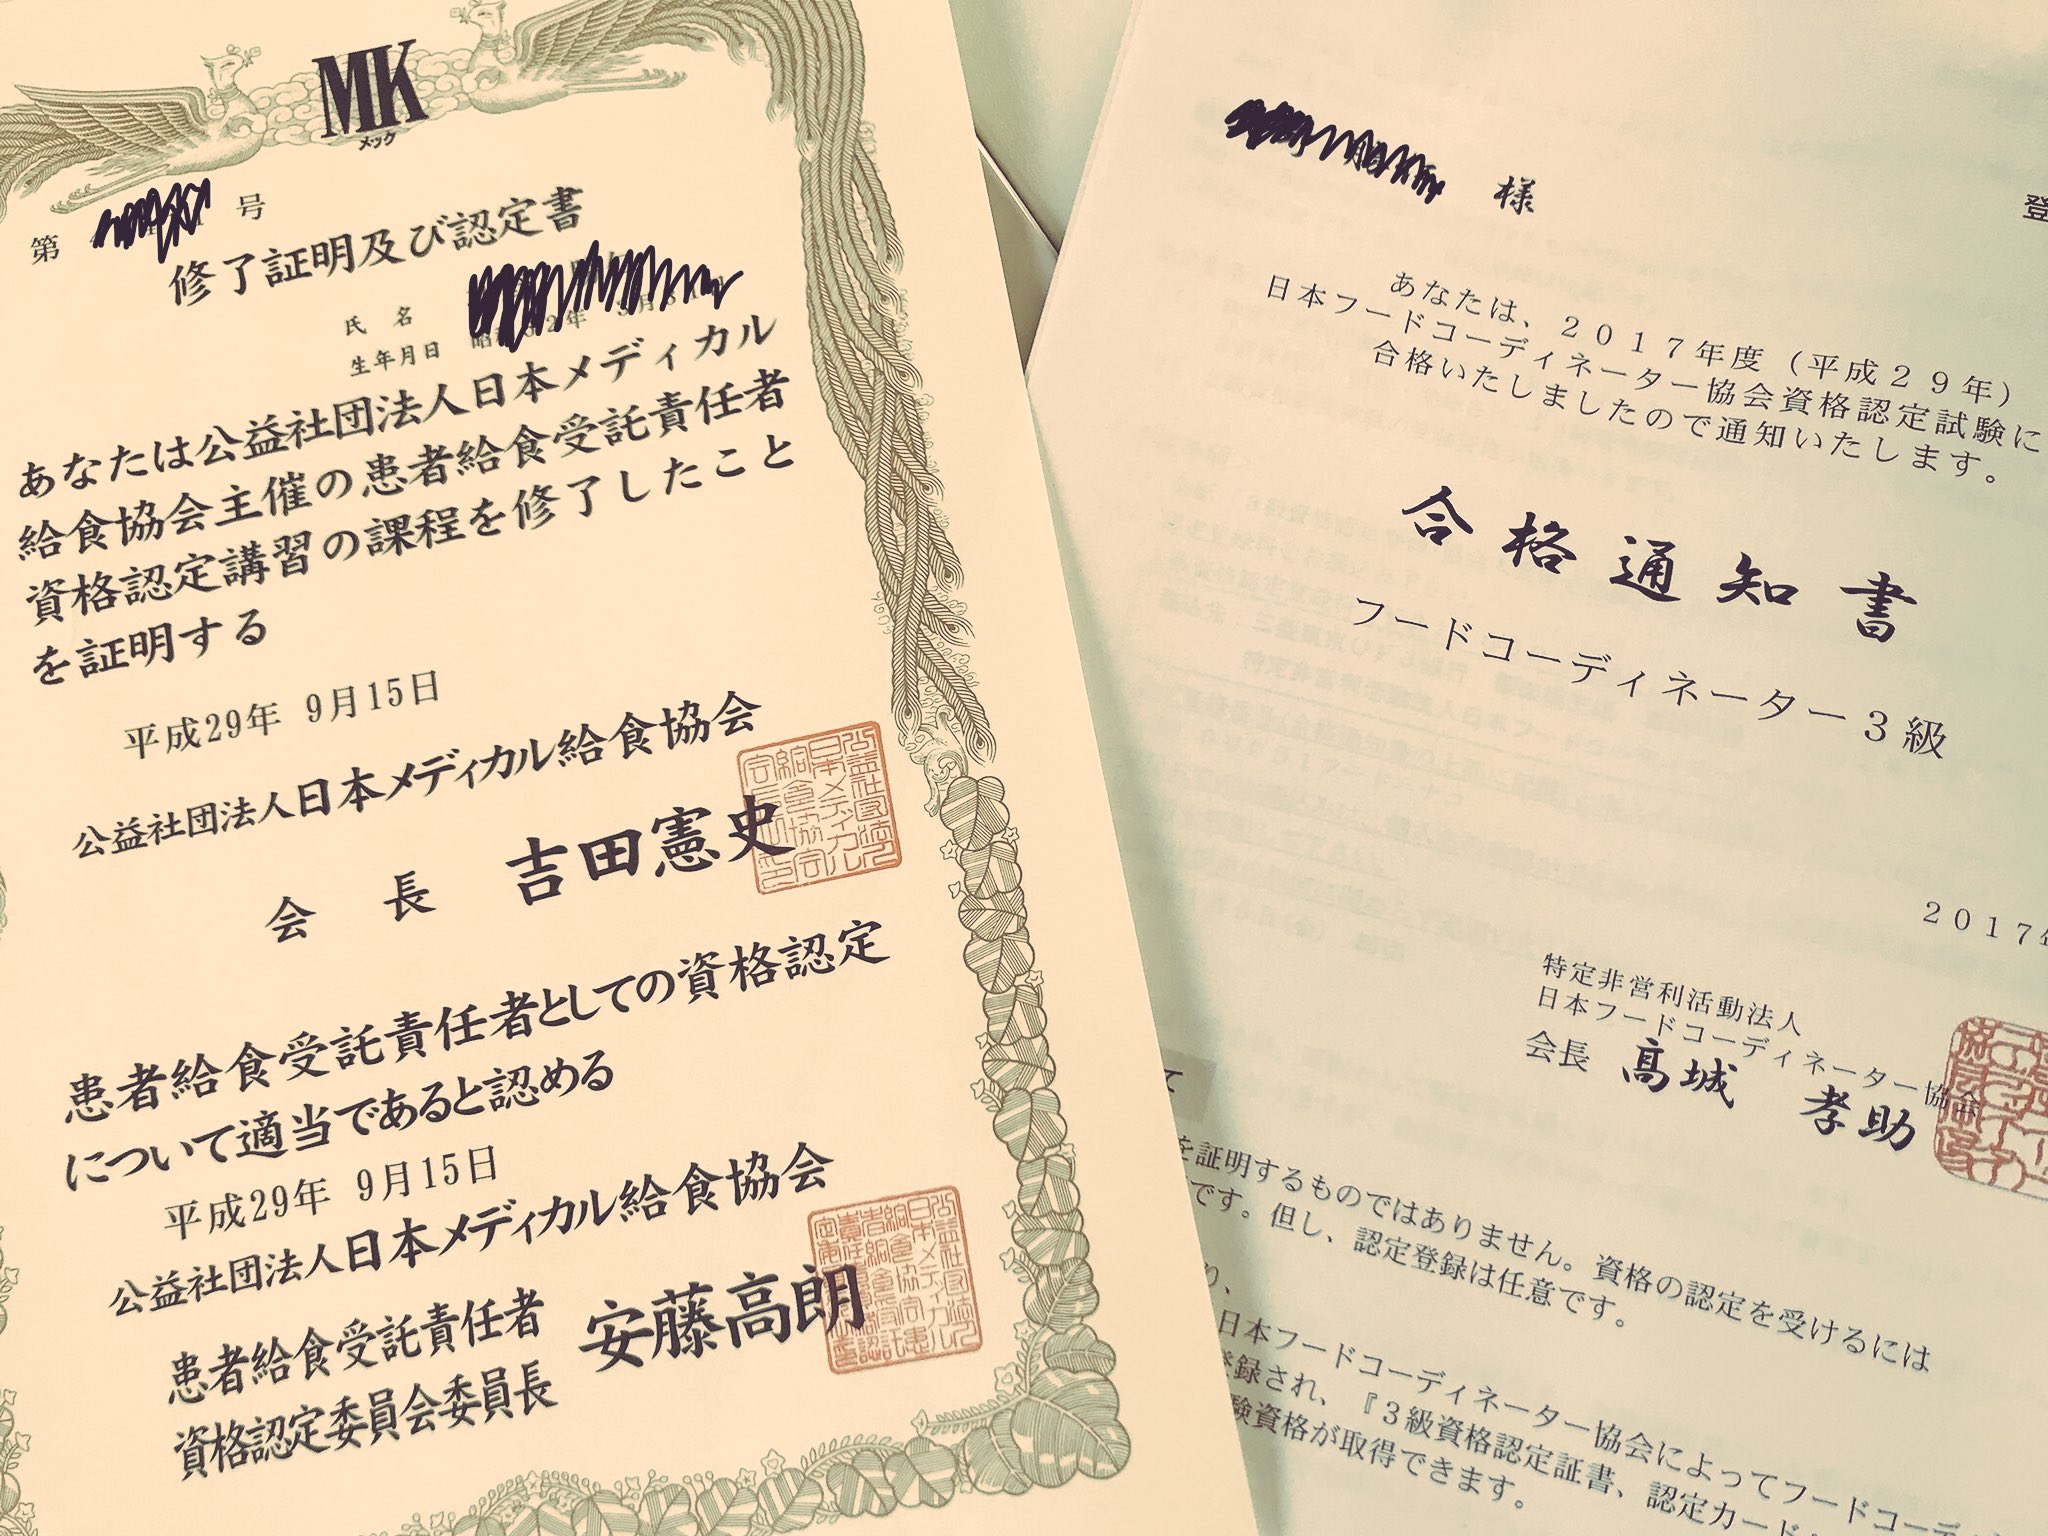 MK
メック
第 号
修了証明及び認定書
氏 名
生年月日 年 月
あなたは公益社団法人日本メディカル
給食協会主催の患者給食受託責任者
資格認定講習の課程を修了したこと
を証明する
平成29年 9月15日
公益社団法人日本メディカル給食協会
会 長 吉田憲史
患者給食受託責任者としての資格認定
について適当であると認める
平成29年 9月15日
公益社団法人日本メディカル給食協会
患者給食受託責任者
資格認定委員会委員長 安藤高朗
様
登
あなたは、2017年度(平成29年)
日本フードコーディネーター協会資格認定試験に
合格いたしましたので通知いたします。
合格通知書
フードコーディネーター3級
2017年
特定非営利活動法人
日本フードコーディネーター協会
会長 髙城 孝助
て
を証明するものではありません。資格の認定を受けるには
です。但し、認定登録は任意です。
り、
日本フードコーディネーター協会によってフードコー
登録され、『3級資格認定証書、認定カード
験資格が取得できます。